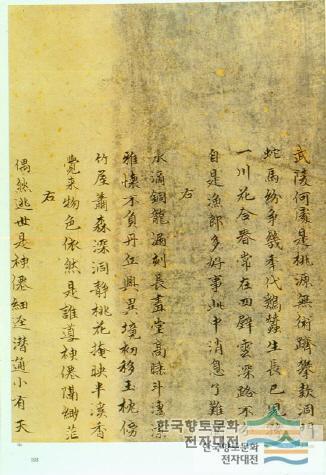 武陵何處是桃源無術躋攀欵洞門
蛇馬紛爭幾年代鷄蠶生長已
一川花合春常在四壁雲深路不
自是漁郎多好事此中消息了難
右
水滴銅龍漏刻長畫堂高睡斗
雅懷不負丹丘興異境初移玉枕傍
竹屋蕭森深洞靜桃花掩映半溪香
覺来物色依然是誰導神僊隔緲茫
右
偶然逃世是神僊細逕潜通小有天
한국향토문화
전자대전
한국향토문화
전자대전